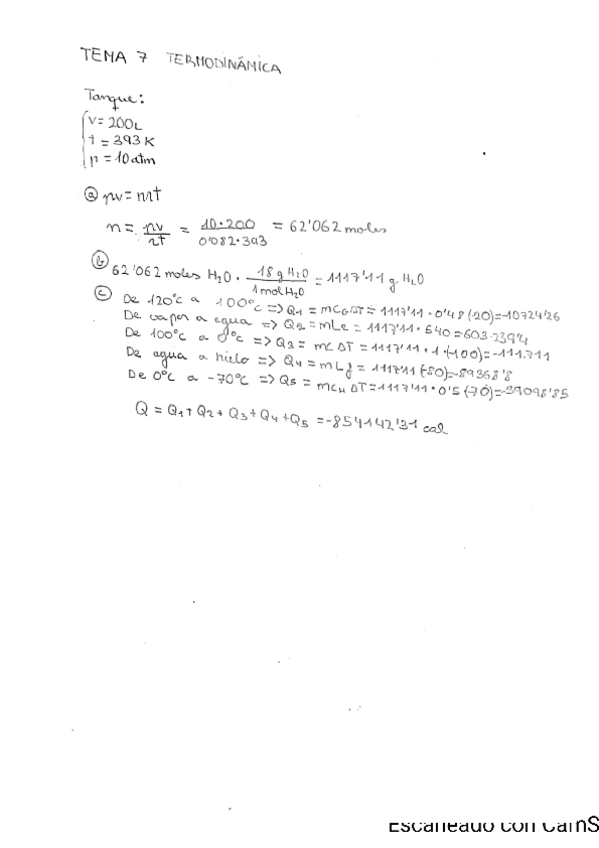 TEMA 7 TERMODINÁMICA
Tanque:
V = 200L
t = 393 K
p = 10 atm
ⓐ pv = nrt
n = pv/rt = 10·200/0'082·393 = 62'062 moles
ⓑ 62'062 moles H₂O · 18 g H₂O/1 mol H₂O = 1117'11 g H₂O
ⓒ De 120°C a 100°C => Q₁ = mC_GΔT = 1117'11 · 0'48 (-20) = -10724'26
De vapor a agua => Q₂ = mLe = 1117'11 · 540 = 603.239'4
De 100°C a 0°C => Q₃ = mC ΔT = 1117'11 · 1 · (-100) = -111.711
De agua a hielo => Q₄ = mLf = 1117'11 (-80) = -89368'8
De 0°C a -70°C => Q₅ = mC_H ΔT = 1117'11 · 0'5 (-70) = -39098'85
Q = Q₁ + Q₂ + Q₃ + Q₄ + Q₅ = -854142'31 cal
Escaneado con CamS